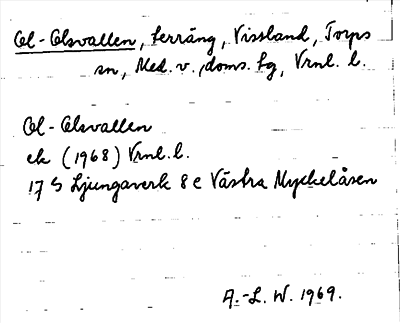 Ol-Olsvallen, terräng, Vissland, Torps
sn, Med. v. doms. hg, Vrnl. l.
Ol-Olsvallen
ek (1968) Vrnl. l.
17 G Ljungaverk 8 e Västra Myckelåsen
A.-L. W. 1969.